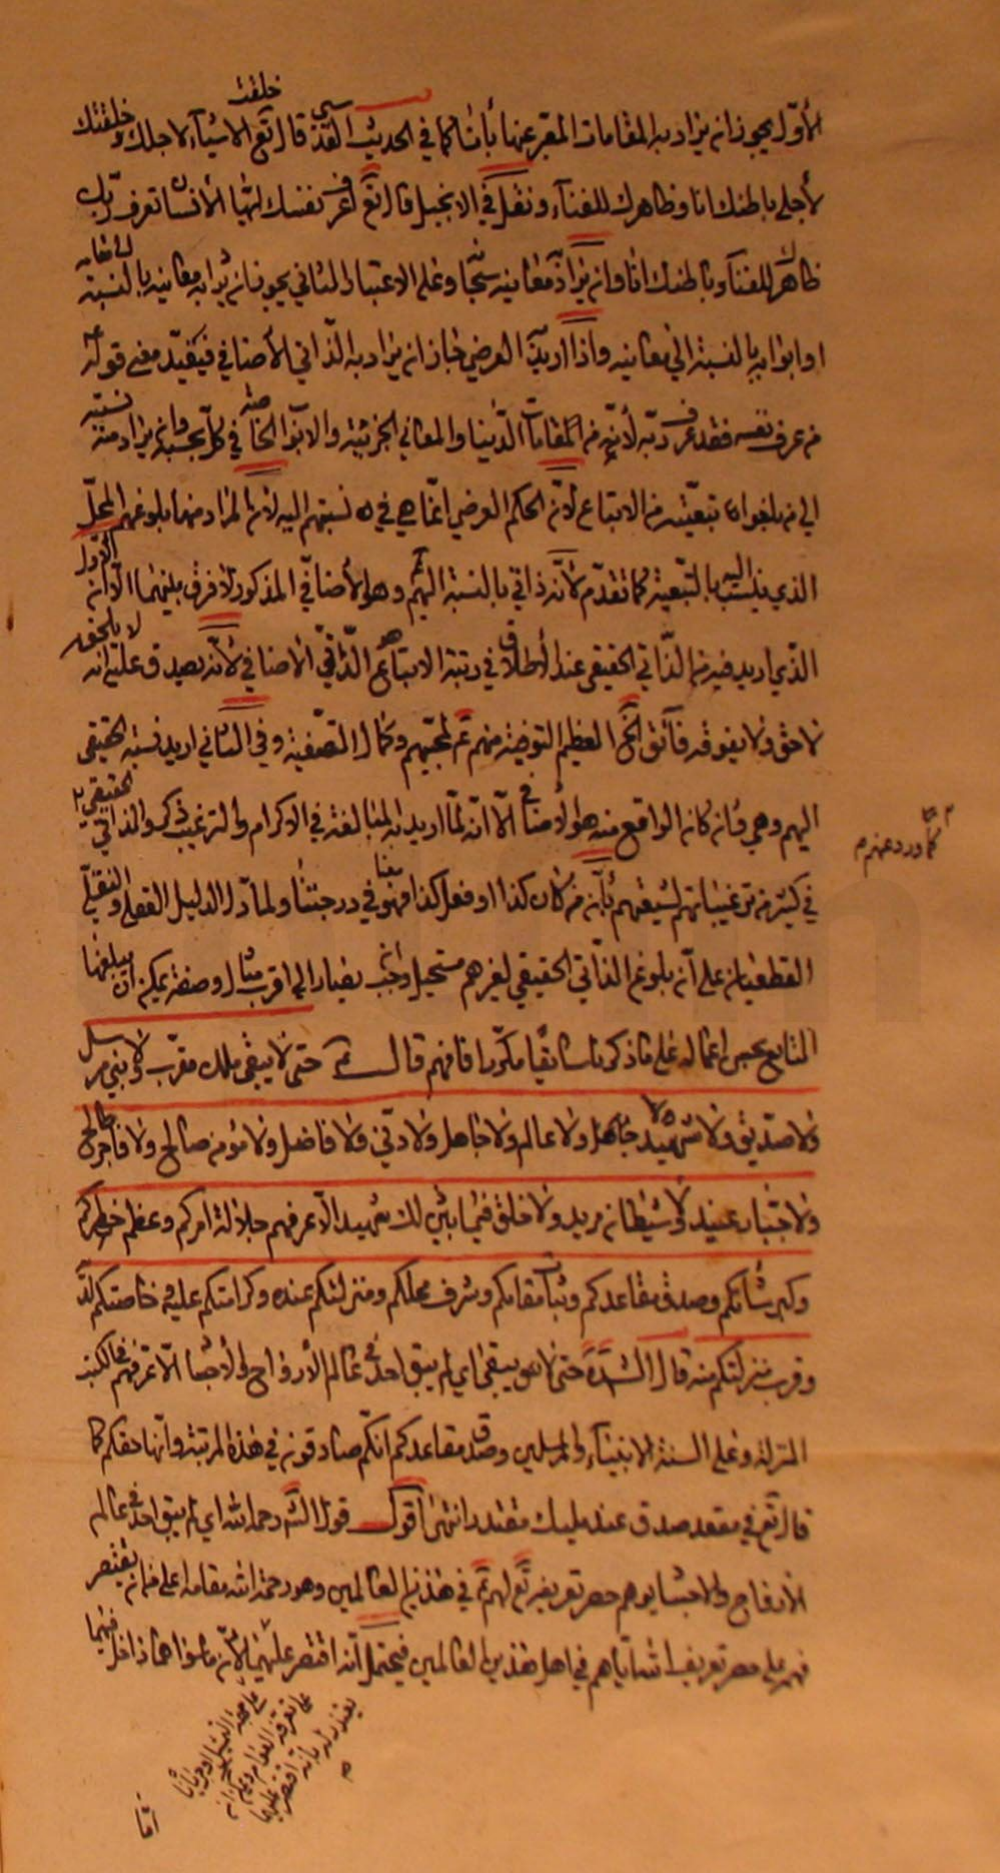 الأوّل يجوز ان يراد به المقامات المعبر عنها بأنا كما في الحديث القدسي قال تع خلقت الاشياء لاجلك وخلقتك
لأجلي باطنك انا وظاهرك للفناء ونقل في الانجيل قال تع اعرف نفسك ايها الأنسان تعرف ربك
ظاهرك للفناء وباطنك انا وان يراد معانيه وعلى الاعتبار الثاني يجوز ان يراد به معانيه بالنسبة الى مقامه
او ابوابه بالنسبة الى معانيه واذا اريد العرضي جاز ان يراد به الذّاتي الأضافي فيقيّد معنى قوله
من عرف نفسه فقد عرف ربّه لأنه من المقامات الدّنيا والمعاني الجزئية والابواب الخاصّة في كلّ بحسبه وان يراد منه نسبته
الى من بلغوا تبعيّته من الاتباع لأن الحكم العرضي انما هي في نسبتهم اليه لأن المراد منها بلوغهم المحلّ
الذي ينسب اليه بالتّبعية كما تقدّم لأنّه ذاتي بالنسبة اليهم وهو الأضافي المذكور ولا فرق بينهما الّا ان الأول
الذّي اريد فيه من الذّاتي الحقيقي عند الأطلاق في رتبة الاتباع هو الذّاتي الأضافي لأنّه يصدق عليه انه لا يلحقه
لاحق ولا يفوقه فائق العظيم التوضية منهم ع لمحبّيهم وكمال التصفية وفي الثاني اريد نسبة الحقيقي
اليهم وهي وان كان الواقع منه هو الأضافي الّا انه لمّا اريد به المبالغة في الاكرام والترغيب ذكر والذاتي الحقيقي
كما ورد عنهم
في كثير من ترغيباتهم لشيعتهم بأن من كان كذا او فعل كذا فهو معنا في درجتنا ولما دل الدليل العقلي والنقلي
القطعيان على ان بلوغ الذّاتي الحقيقي لغيرهم مستحيل وجب يصار الى اقرب مثال وصفة يمكن ان يبلغها
التابع بحسن اعماله على ما ذكرنا سابقًا مكرّرا فافهم قال ع حتى لا يبقى ملك مقرّب ولا نبي مرسل
ولا صدّيق ولا شهيد ولا جاهل ولا عالم ولا دنّي ولا فاضل ولا مؤمن صالح ولا فاجر طالح
ولا جبّار عنيد ولا شيطان مريد ولا خلق فيما بين ذلك شهيد الّا عرفهم جلالة امركم وعظم خطركم
وكبر شأنكم وصدق مقاعدكم وثبات مقامكم وشرف محلكم ومنزلتكم عنده وكرامتكم عليه وخاصتكم لديه
وقرب منزلتكم منه قال الش حتى لا يبقى اي لم يبق احد في عالم الأرواح والأجساد الّا عرفهم في الكتب
المنزلة وعلى السنة الانبياء والمرسلين وصدق مقاعدكم انكم صادقون في هذه المرتبة وانها حقكم كما
قال تع في مقعد صدق عند مليك مقتدر انتهى اقول قول الش رحمه الله اي لم يبق احد في عالم
الأرواح والاجساد يوهم حصر تعريفه تع لهم ع في هذين العالمين وهو رحمة الله مقامه اعلى من ان يقتصر
فهمه على حصر تعريف الله اياهم في اهل هذين العالمين فيحتمل انه اقتصر عليهما لأن ما سواهما داخل فيهما
امّا